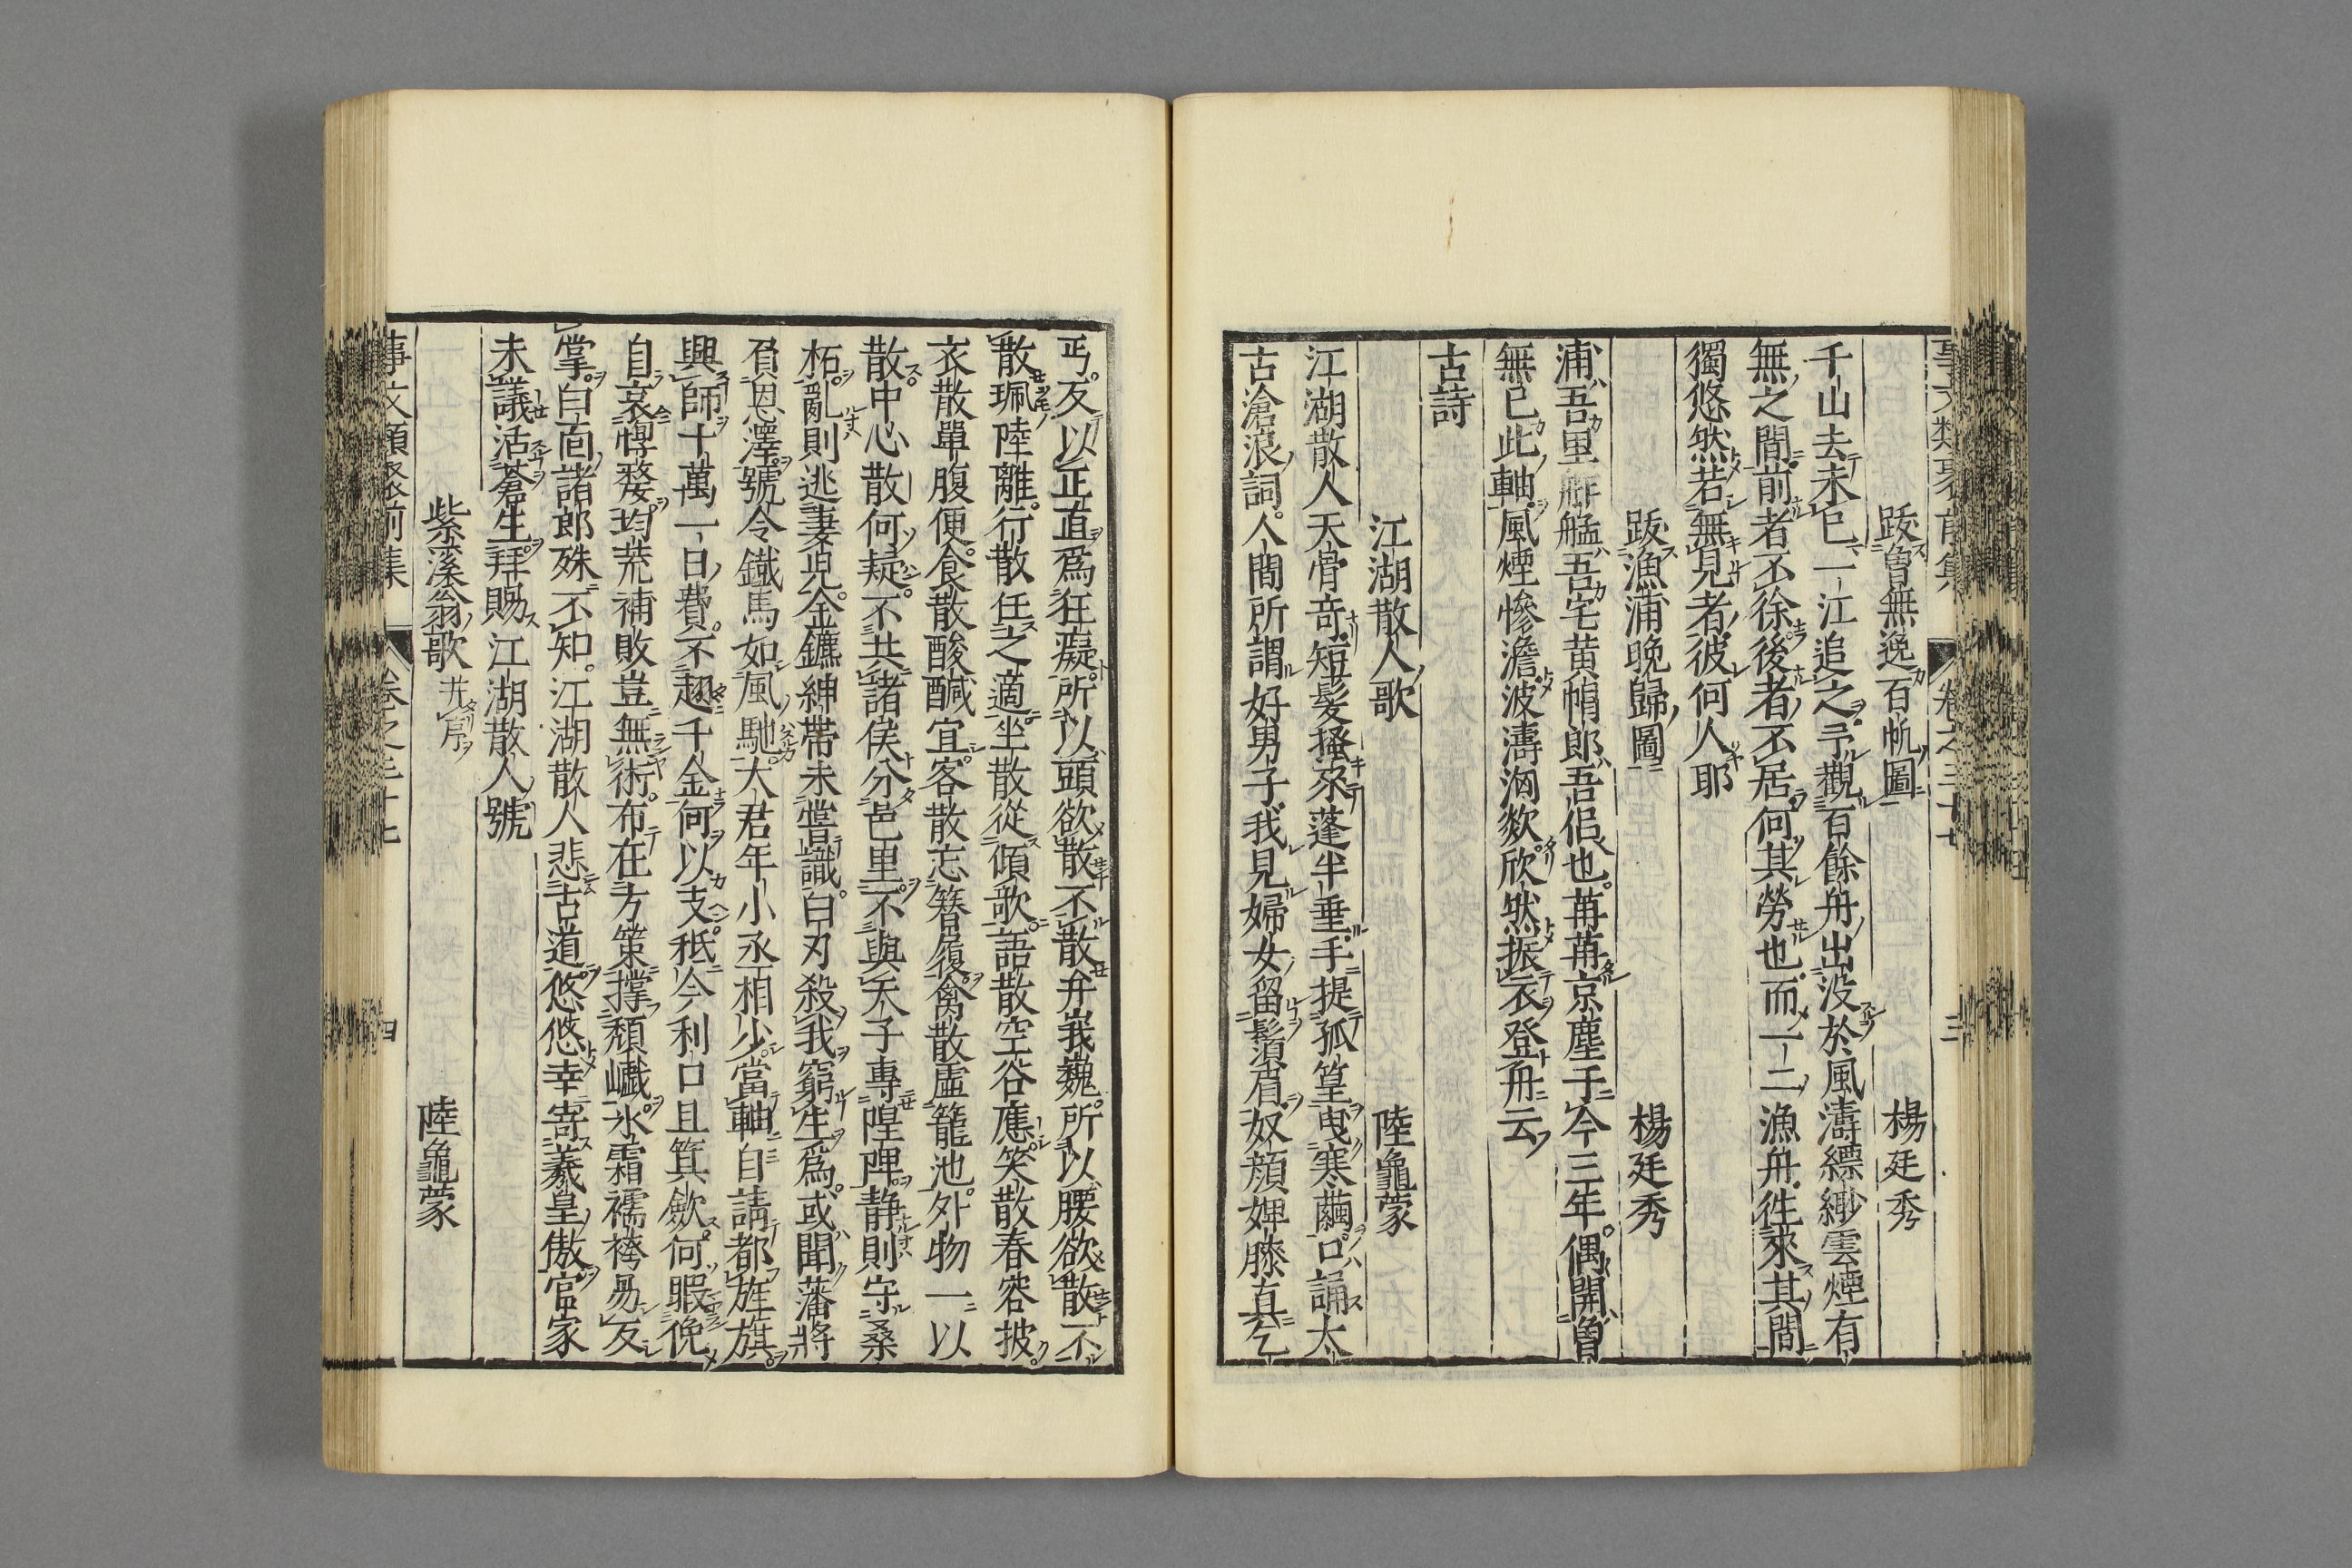 事文類聚前集 卷之三十七 三
跋魯無逸百帆圖 楊廷秀
千山去未已一江追之予觀百餘舟出没於風濤縹緲雲煙有
無之間前者不徐後者不居何其勞也而一二漁舟徃來其間
獨悠然若無見者彼何人耶
跋漁浦晚歸圖 楊廷秀
浦吾里舴艋吾宅黄帽郎吾侣也苒苒京塵于今三年偶開魯
無已此軸風煙慘澹波濤洶欻欣然振衣登舟云
古詩
江湖散人歌 陸龜蒙
江湖散人天骨竒短髮搔來蓬半垂手提孤篁曳寒繭口誦太
古滄浪詞人間所謂好男子我見婦女留鬚眉奴顔婢膝真乞
丐反以正直爲狂癡所以頭欲散不散弁峩巍所以腰欲散不
散珮陸離行散任之適坐散從傾歌語散空谷應笑散春容披
衣散單腹便食散酸醎宜客散忘簪履禽散虛籠池外物一以
散中心散何疑不共諸侯分邑里不與天子專隍陴静則守桑
柘亂則逃妻兒金鑣紳帶未嘗識白刃殺我窮生爲或聞藩將
負恩澤號令鐵馬如風馳大君年小丞相少當軸自請都旌旗
興師十萬一日費不趐千金何以支秪今利口且箕歛何暇俛
自哀惸嫠均荒補敗豈無術布在方策撑頽巇氷霜襦袴易反
掌白面諸郎殊不知江湖散人悲古道悠悠幸寄羲皇傲官家
未議活蒼生拜賜江湖散人號
紫溪翁歌 并序 陸龜蒙
事文類聚前集 卷之三十七 四